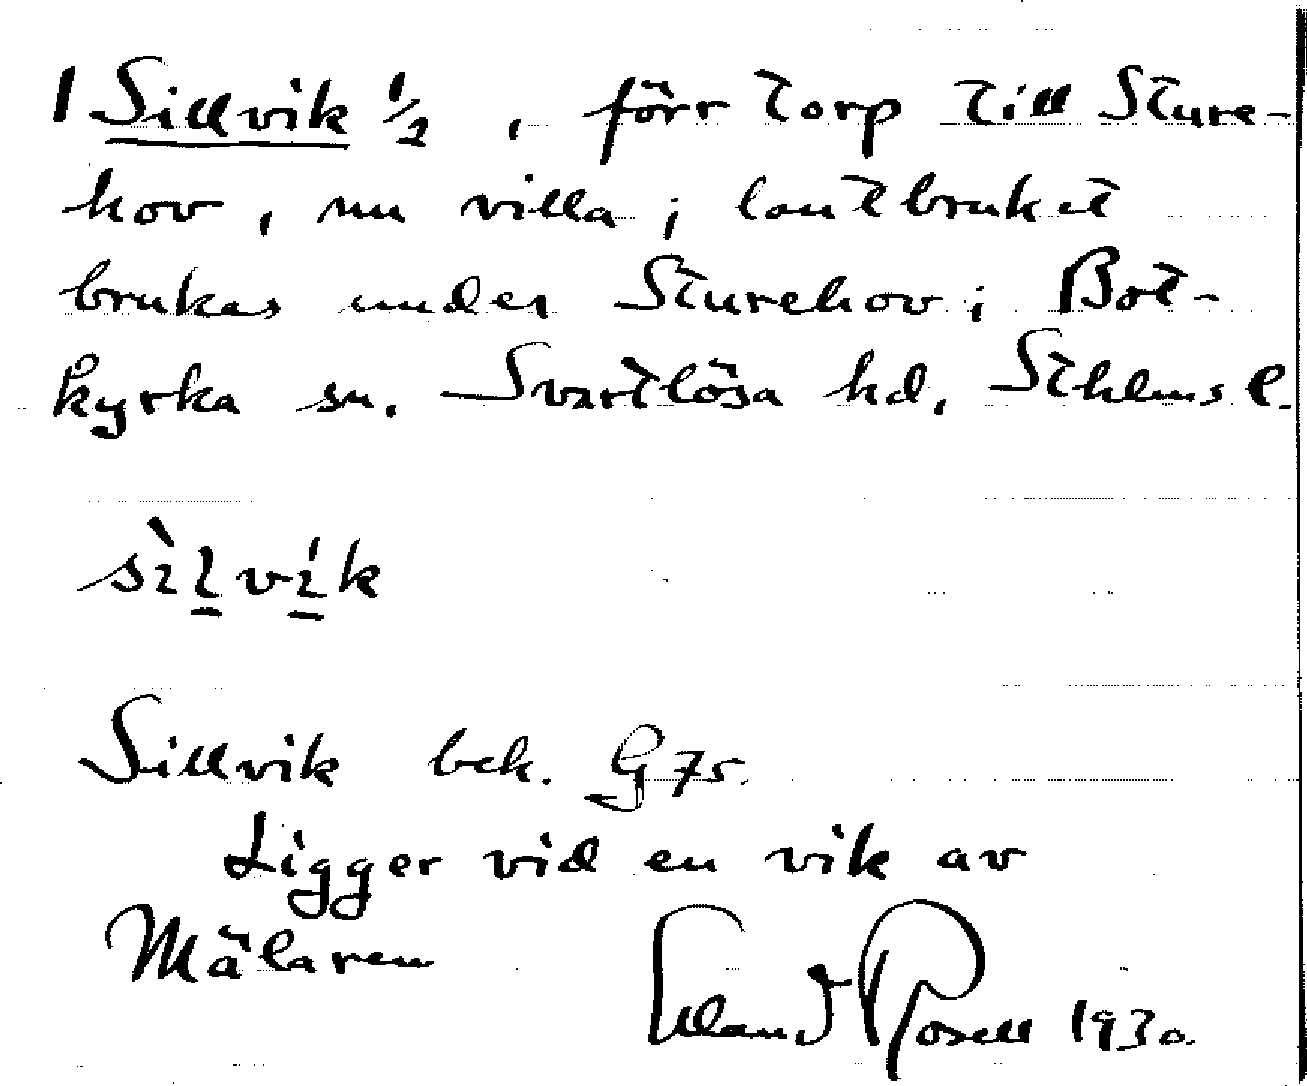 1 Sillvik ½, förr torp till Sture-
hov, nu villa; lantbruket
brukas under Sturehov; Bot-
kyrka sn. Svartlösa hd, Sthlms l.
sìlvík
Sillvik bek. G 75.
Ligger vid en vik av
Mälaren
Rosell 1930.